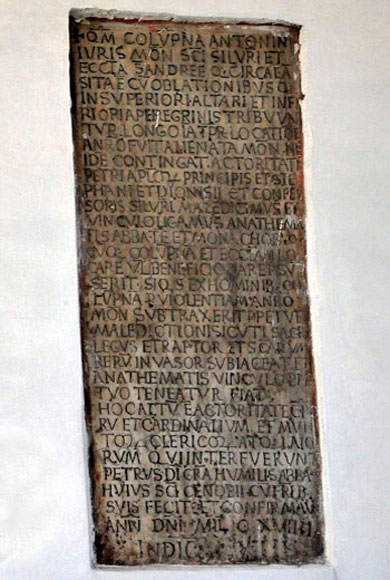 + QM COLUPNA ANTONINI
IURIS MON SCI SILURI ET
ECCLA SANDREE Q CIRCA EA
SITA E CV OBLATIONIBUS Q
IN SUPERIORI ALTARI ET INFE
RIORI A PEREGRINIS TRIBUUN
TUR LONGO IA TPR LOCATIOE
ANRO FVIT ALIENATA NON NE
IDE CONTINGAT ACTORITATE
PETRI APLOR PRINCIPIS ET STE
PHANI ET DIONISII ET CONFES
SORIS SILURI MALEDICIMUS ET
VINCULO LIGAMUS ANATHEMA
TIS ABBATE ET MONACHOS
QVOS COLUPNA ET ECCLA LO
CARE VL BENEFICIO DARE PSUP
SERIT SI QS EX HOMINIB CO
LUPNA P VIOLENTIAM A NRO
MON SUBTRAXERIT PPETUE
MALEDICTIONI SICUTI SACRI
LEGUS ET RAPTOR ET SCARUM
RERU INVASOR SUBIACEAT ET
ANATHEMATIS VINCULO PPE
TUO TENEATUR FIAT
HOC ACTU E ACTORITATE EPI
RU ET CARDINALIUM ET MUL
TOR CLERICOR ATQ LAICO
RUM QUI INTERFUERUNT
PETRUS DI GRA HUMILIS ABBA
HUIUS SCI CENOBII CU FRIB
SUIS FECIT ET CONFIRMAV
ANN DNI MIL C XVIIII
INDIC XII